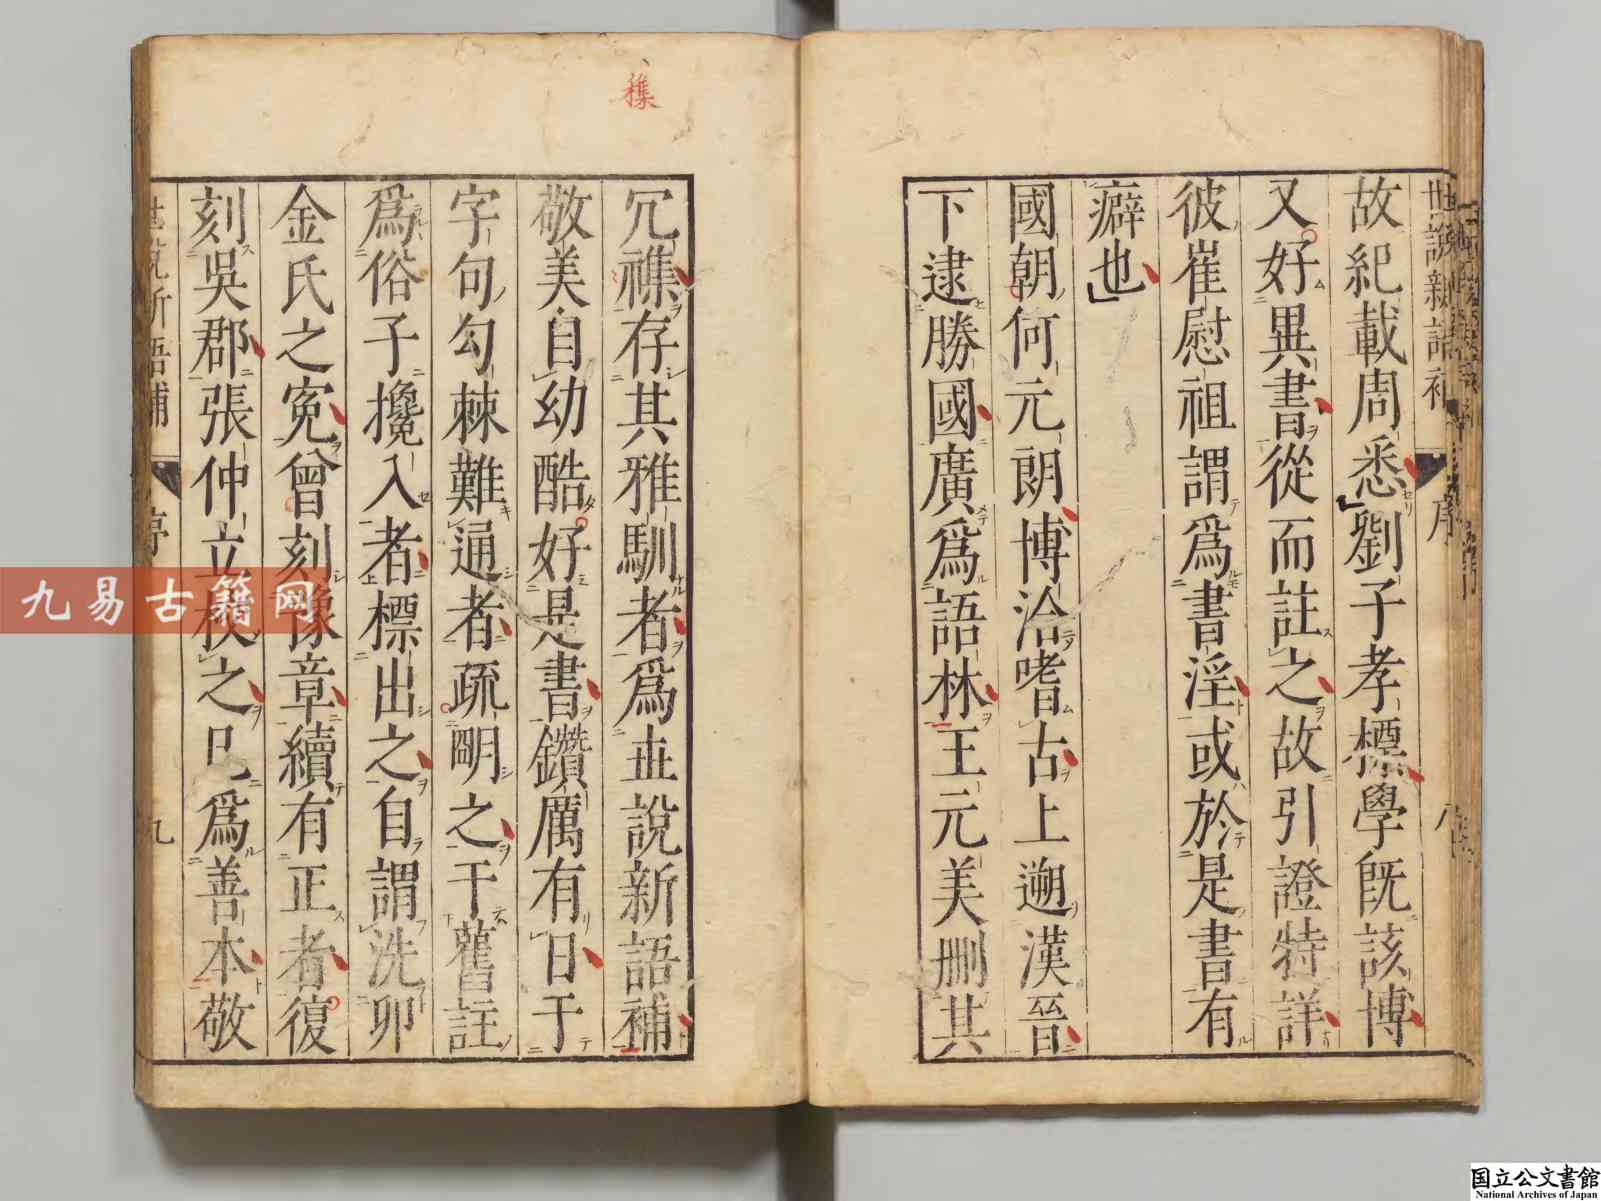 世說新語補
序
八
故紀載周悉劉子孝標學旣該博
又好異書從而註之故引證特詳
彼崔慰祖謂爲書淫或於是書有
癖也
國朝何元朗博洽嗜古上遡漢晉
下逮勝國廣爲語林王元美刪其
穕
冗襍存其雅馴者爲世說新語補
敬美自幼酷好是書鑽厲有日于
字句勾棘難通者疏明之于舊註
爲俗子攙入者標出之自謂洗卯
金氏之寃曾刻豫章續有正者復
刻吳郡張仲立校之已爲善本敬
世說新語補
序
九
九易古籍网
国立公文書館
National Archives of Japan